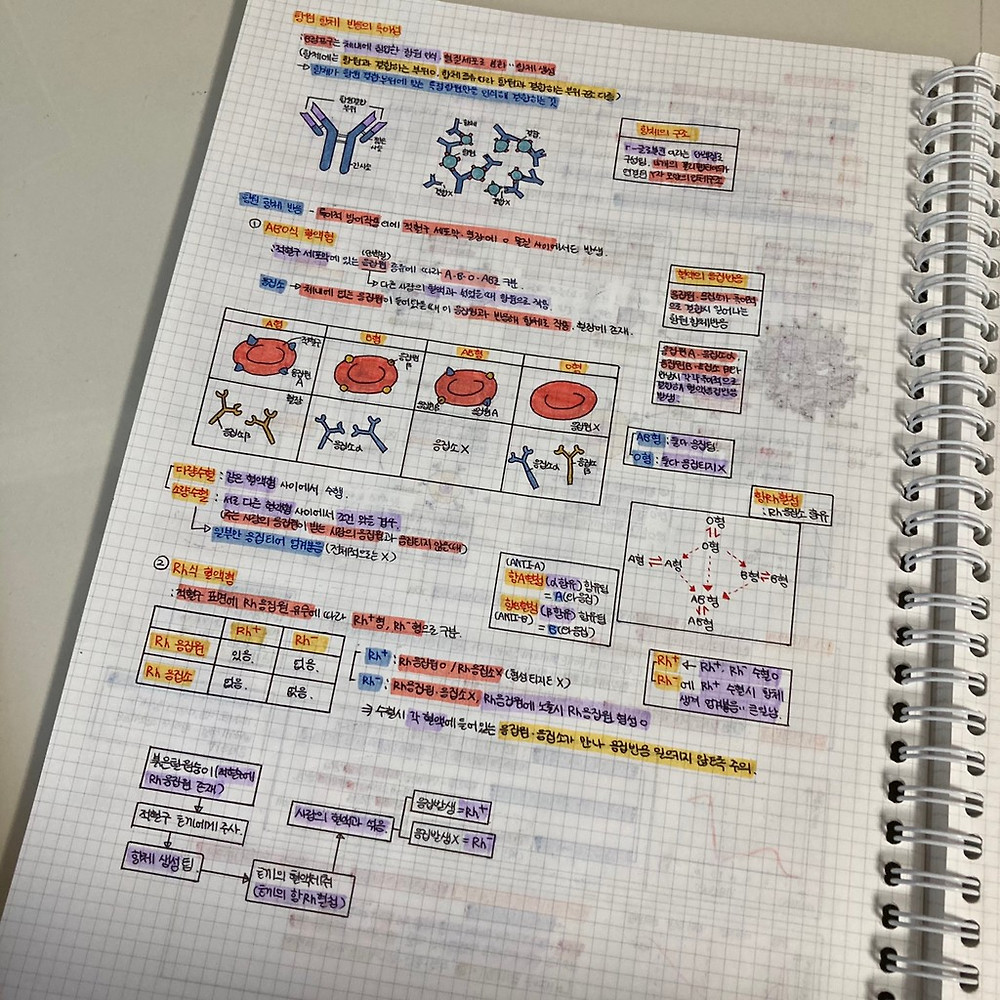 항원 항체 반응의 특이성
: 형질세포로 분화 ∵ 항체 생성
(항체에는 항원과 결합하는 부위 O. 항체 종류 따라 항원과 결합하는 부위 구조 다름)
→ 항체가 항원 결합부위에 맞는 특정항원만을 인식해 결합하는 것
항원결합 부위
항체
항원
결합
결합X
항체의 구조
γ-글로불린 이라는 단백질로
구성됨.
연결된 Y자 모양의 입체구조
항원 항체 반응 - 특이적 방어작용 이외에 적혈구 세포막·혈장에 O 물질 사이에서도 발생.
① ABO식 혈액형
: 적혈구 세포막에 있는 응집원 종류에 따라 A·B·O·AB로 구분.
↳ 다른 사람의 혈액과 섞였을 때 항원으로 작용.
응집소 → 체내에 없는 응집원이 들어왔을 때 이 응집원과 반응해 항체로 작용. 혈장에 존재.
혈액의 응집반응
응집원·응집소가 특이적
으로 결합시 일어나는
항원 항체반응
A형
B형
AB형
O형
적혈구
응집원 A
응집원 B
응집원B
응집원A
응집원X
혈장
응집소β
응집소α
응집소 X
응집소α
응집소β
응집원A·응집소α
응집원B·응집소β가
만날시 각각 특이적으로
결합해 혈액응집반응
발생.
AB형 : 둘다 응집됨
O형 : 둘다 응집되지 X
다량수혈 : 같은 혈액형 사이에서 수행.
소량수혈 : 서로 다른 혈액형 사이에서 조건 맞을 경우.
(주는 사람의 응집원이 받는 사람의 응집소와 응집되지 않을 때)
→ 일부만 응집되어 업겨붙음 (전체적으로는 X)
항Rh혈청
: Rh응집소 함유
O형
O형
A형 ⇄ A형
B형 ⇄ B형
AB형
AB형
(ANTI-A)
항A혈청 (α함유) 응집됨
= A(와 응집)
항B혈청 (β 함유) 응집됨
(ANTI-B)
= B(와 응집)
② Rh식 혈액형
: 적혈구 표면에 Rh응집원 유무에 따라 Rh⁺형, Rh⁻형으로 구분.
Rh⁺ Rh⁻
Rh 응집원 있음. 없음.
Rh 응집소 없음. 없음.
Rh⁺ : Rh응집원O / Rh응집소X (형성 되지도 X)
Rh⁻ : Rh응집원·응집소X, Rh응집원에 노출시 Rh응집원 형성 O
⇒ 수혈시 각 혈액에 들어있는 응집원·응집소가 만나 응집반응 일으키지 않도록 주의.
Rh⁺ ← Rh⁺, Rh⁻ 수혈O
Rh⁻에 Rh⁺ 수혈시 항체
생겨 엉겨붙음 ∵ 큰일남.
붉은털원숭이(적혈구에
Rh응집원 존재)
적혈구 토끼에게 주사.
항체 생성됨
토끼의 혈액채취
(토끼의 항Rh혈청)
사람의 혈액과 섞음.
응집발생 = Rh⁺
응집발생 X = Rh⁻